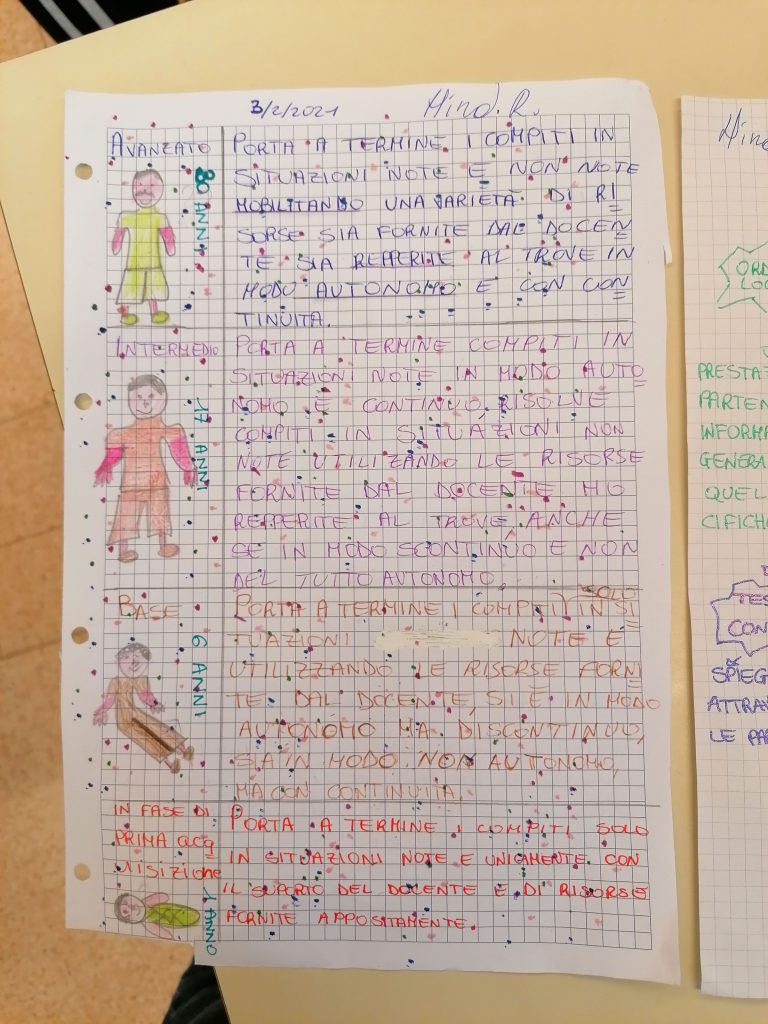 3/2/2021 Hind. R.
AVANZATO
80 ANNI
PORTA A TERMINE I COMPITI IN
SITUAZIONI NOTE E NON NOTE
MOBILITANDO UNA VARIETÀ DI RI
SORSE SIA FORNITE DAL DOCEN
TE SIA REPPERITE AL TROVE IN
MODO AUTONOMO E CON CON
TINUITA.
INTERMEDIO
17 ANNI
PORTA A TERMINE COMPITI IN
SITUAZIONI NOTE IN MODO AUTO
NOMO E CONTINUO, RISOLVE
COMPITI IN SITUAZIONI NON
NOTE UTILIZANDO LE RISORSE
FORNITE DAL DOCENTE HO
REPPERITE AL TROVE ANCHE
SE IN MODO SCONTINUO E NON
DEL TUTTO AUTONOMO,
BASE
6 ANNI
SOLO
PORTA A TERMINE I COMPITI IN SI
TUAZIONI NOTE E
UTILIZZANDO LE RISORSE FORNI
TE DAL DOCENTE, SI E IN MODO
AUTONOMO MA DISCONTINUO,
SIA IN MODO NON AUTONOMO,
MA CON CONTINUITA.
IN FASE DI
PRIMA acq
UISIZIONE
1 ANNO
PORTA A TERMINE i COMPITI SOLO
IN SITUAZIONI NOTE E UNICAMENTE CON
IL SUPORTO DEL DOCENTE E DI RISORSE
FORNITE APPOSITAMENTE.
ORD
LOG
PRESTAZ
PARTEN
INFORMA
GENERA
QUEL
CIFICH
TES
CON
SPIEG
ATTRAV
LE PA